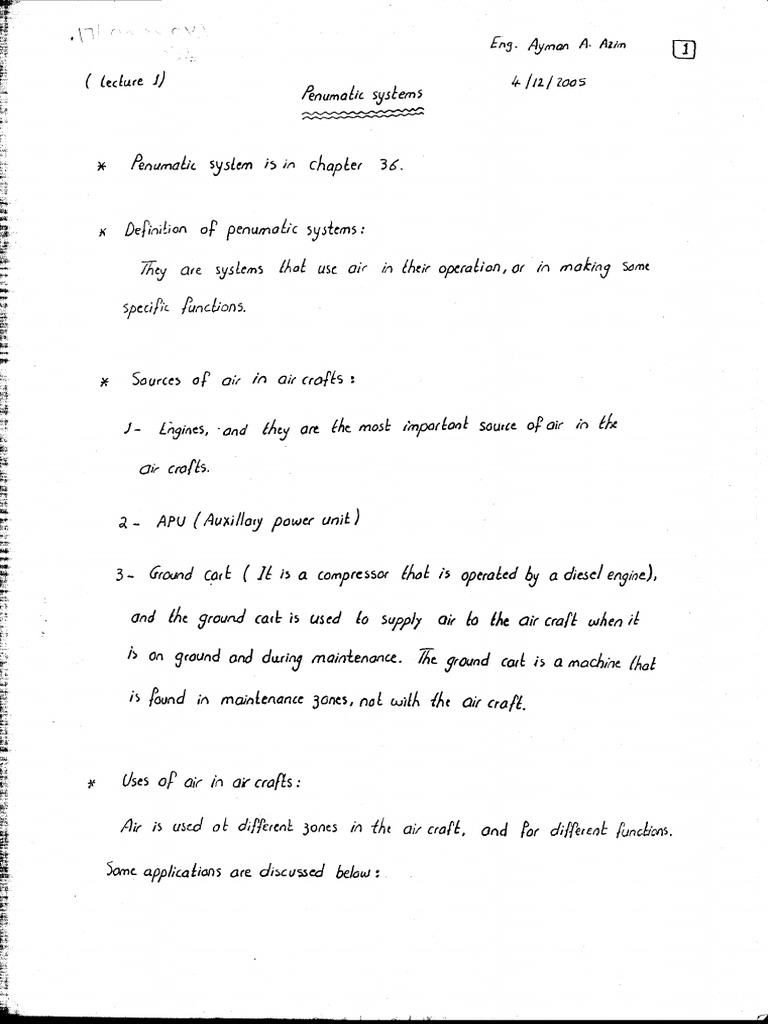 Eng. Ayman A. Azim 1
( Lecture 1) 4/12/2005
Penumatic systems
* Penumatic system is in chapter 36.
* Definition of penumatic systems:
They are systems that use air in their operation, or in making some
specific functions.
* Sources of air in air crafts:
1- Engines, and they are the most important source of air in the
air crafts.
2- APU (Auxillary power unit)
3- Ground cart ( It is a compressor that is operated by a diesel engine),
and the ground cart is used to supply air to the air craft when it
is on ground and during maintenance. The ground cart is a machine that
is found in maintenance zones, not with the air craft.
* Uses of air in air crafts:
Air is used at different zones in the air craft, and for different functions.
Some applications are discussed below: